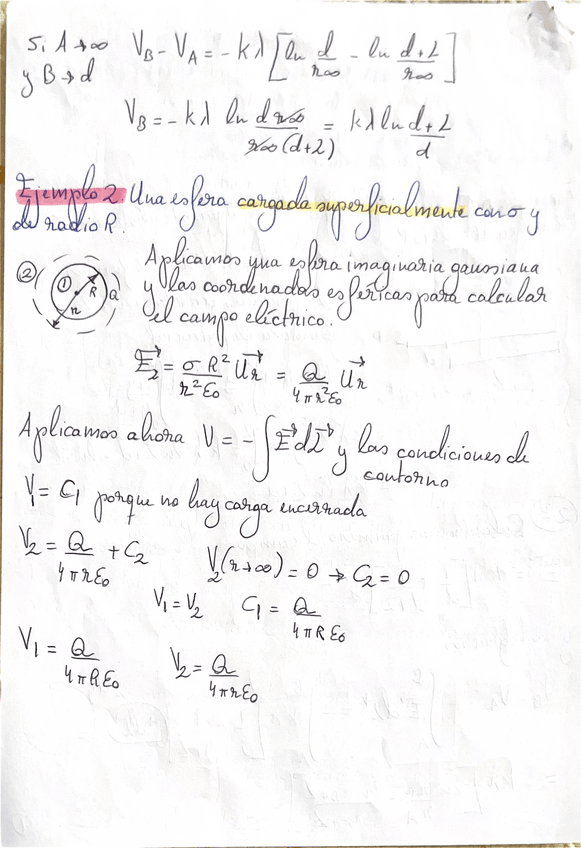 Si A→∞ V_B - V_A = -kλ [ln d/r∞ - ln d+L/r∞]
y B→d
V_B = -kλ ln d r∞/r∞(d+L) = kλ ln d+L/d
Ejemplo 2. Una esfera cargada superficialmente con σ y
de radio R.
② ① R r Q
Aplicamos una esfera imaginaria gaussiana
y las coordenadas esféricas para calcular
el campo eléctrico.
E₂ = σR²/r²ε₀ Ur = Q/4πr²ε₀ Ur
Aplicamos ahora V = -∫E dL y las condiciones de
contorno
V₁ = C₁ porque no hay carga encerrada
V₂ = Q/4πrε₀ + C₂ V₂(r→∞) = 0 → C₂ = 0
V₁ = V₂ C₁ = Q/4πRε₀
V₁ = Q/4πRε₀ V₂ = Q/4πrε₀